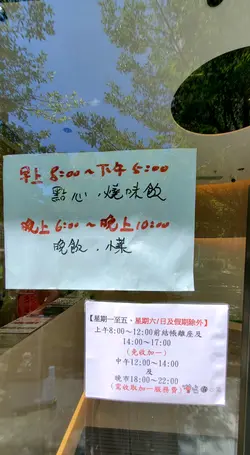 早上 8:00~下午 5:00
點心．燒味飲
晚上 6:00~晚上 10:00
晚飲．小菜
【星期一至五．星期六/日及假期除外】
上午8:00~12:00前結帳離座及
14:00~17:00
(免收加一)
中午12:00~14:00
及
晚市18:00~22:00
(需收取加一服務費)